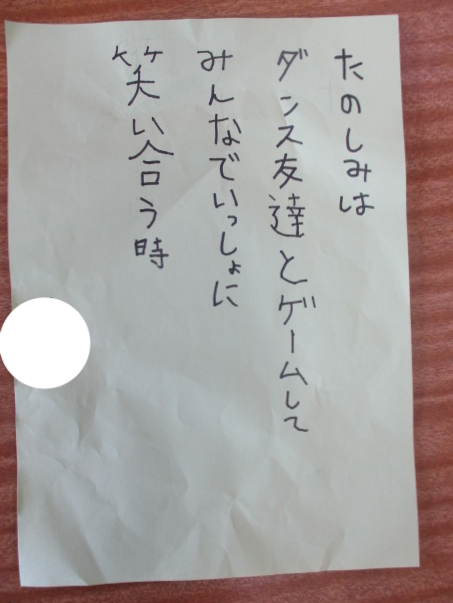 たのしみは
ダンス友達とゲームして
みんなでいっしょに
笑い合う時